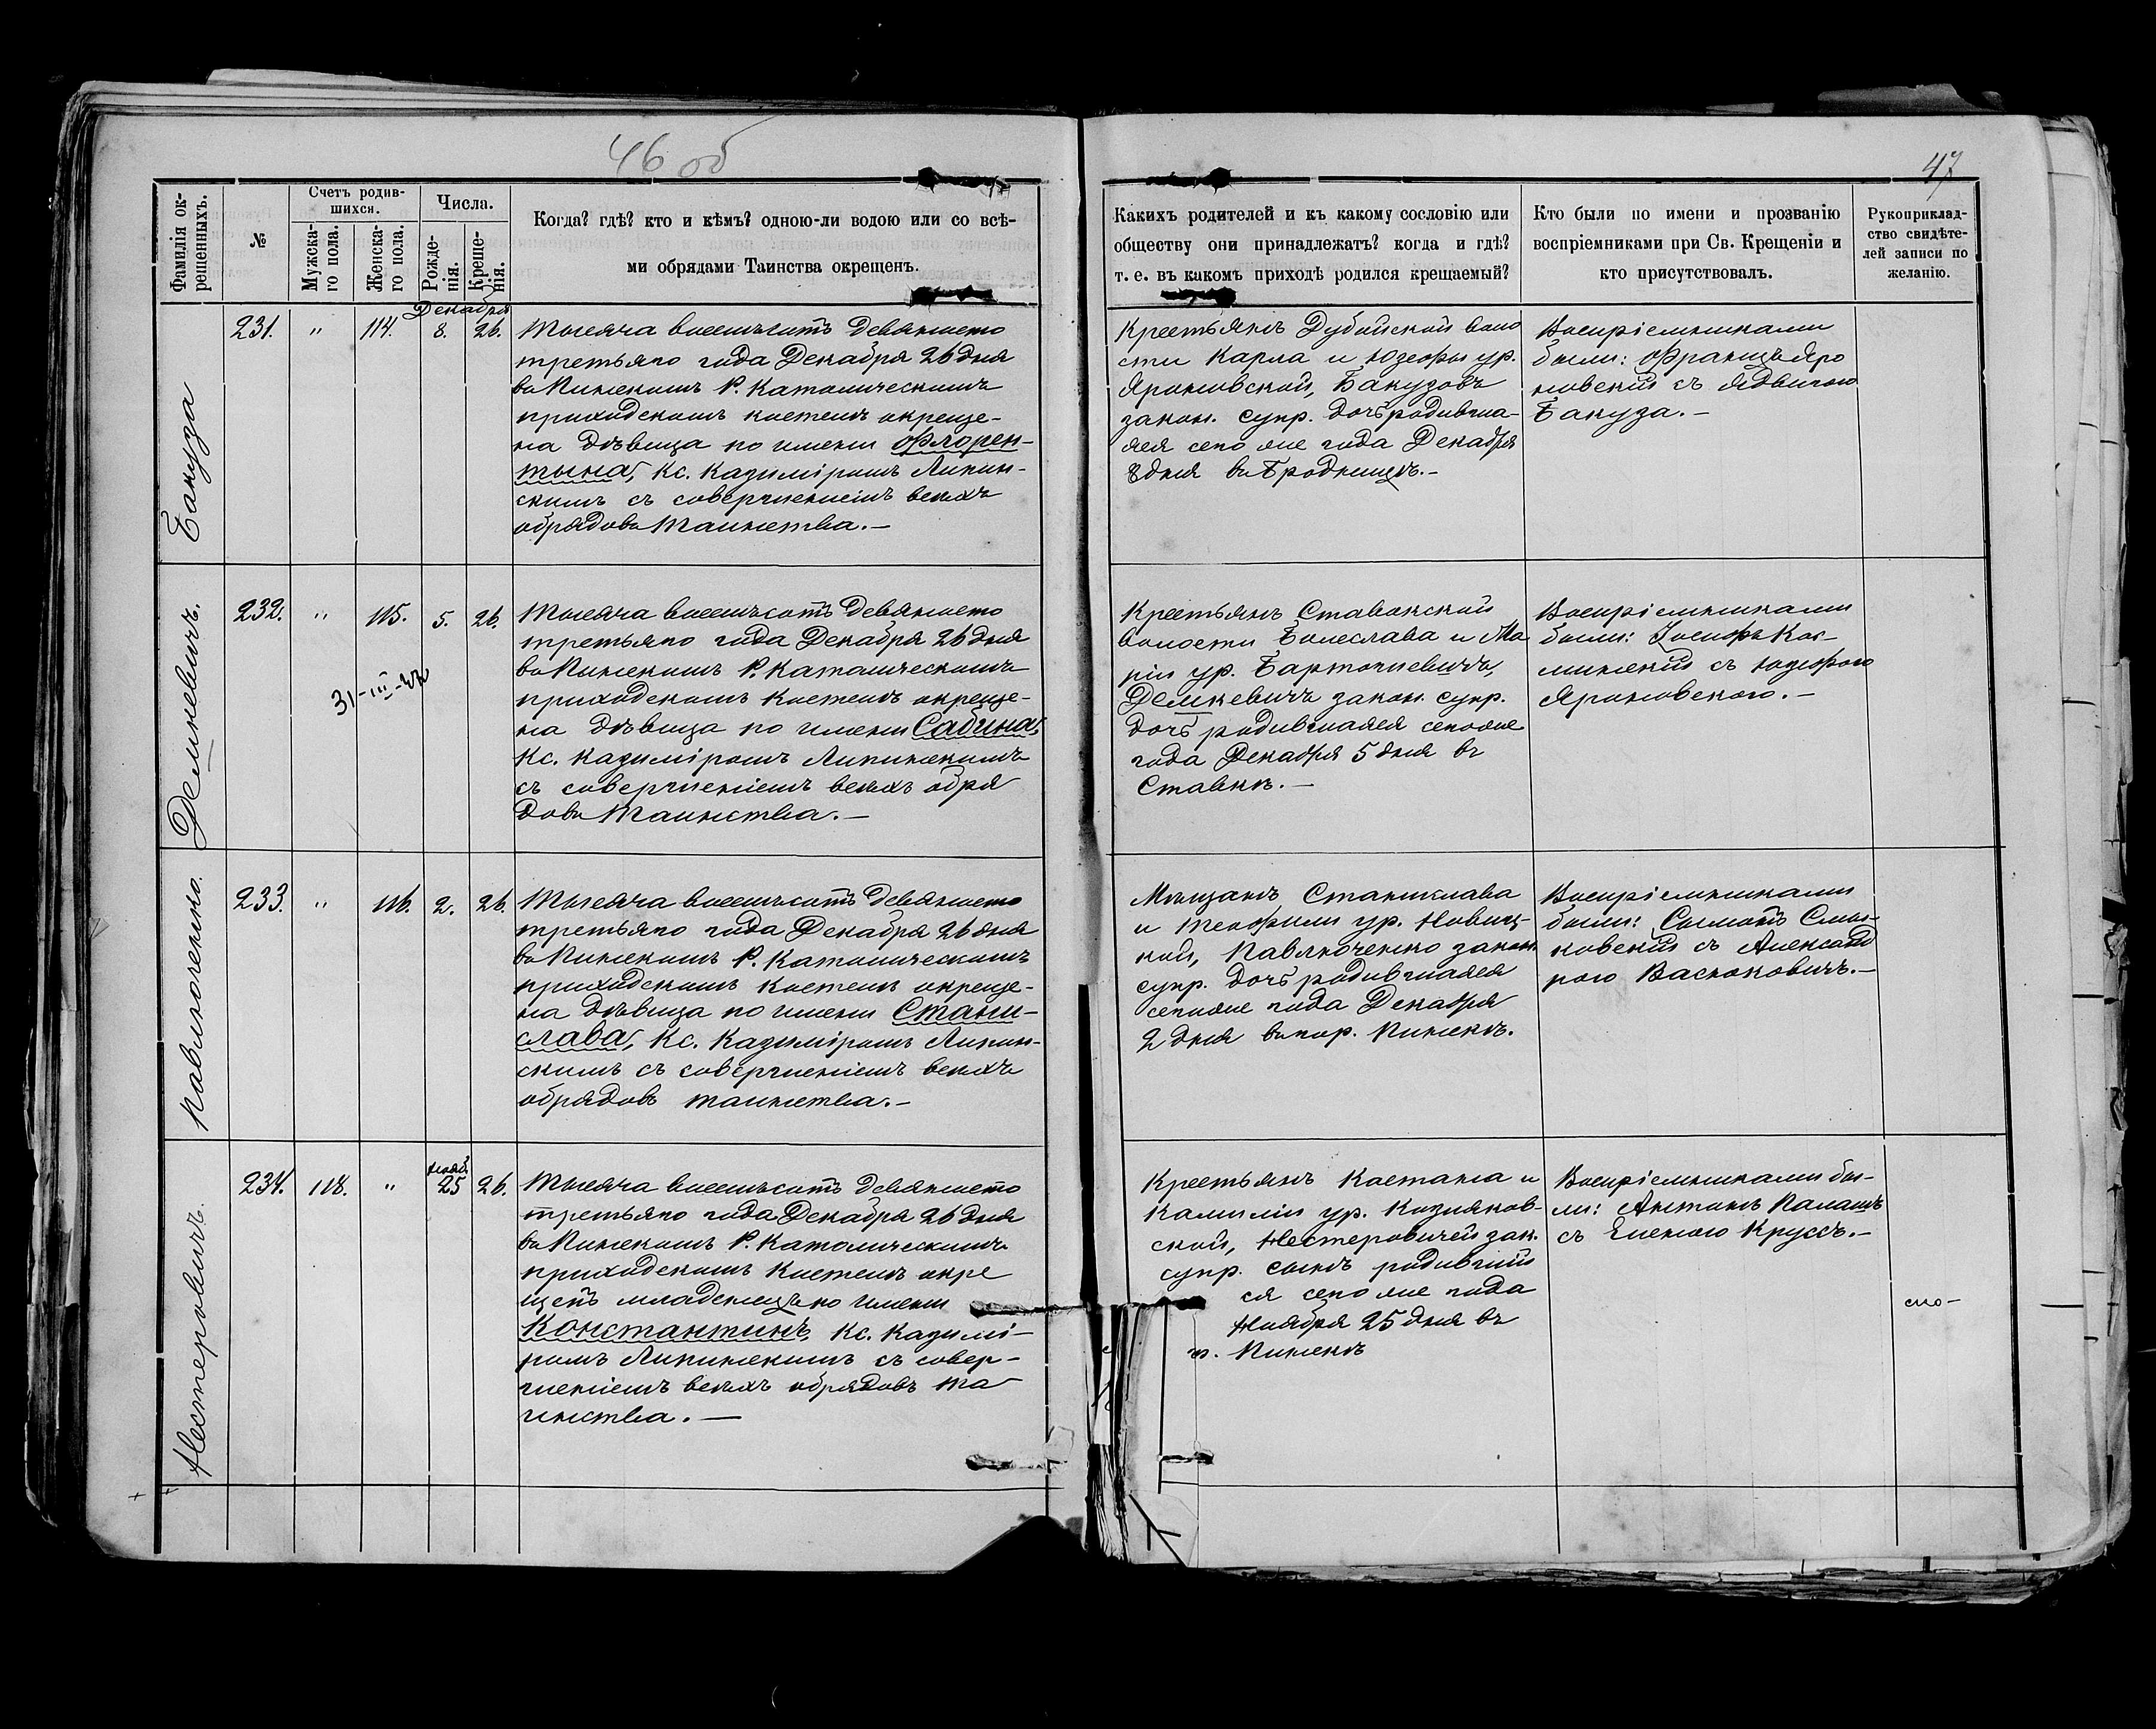 46 об
47
Фамилія ок-
рещенныхъ.
№
Счетъ родив-
шихся.
Мужска-
го пола.
Женска-
го пола.
Числа.
Рожде-
нія.
Креще-
нія.
Когда? гдѣ? кто и кѣмъ? одною-ли водою или со всѣ-
ми обрядами Таинства окрещенъ.
Какихъ родителей и къ какому сословію или
обществу они принадлежатъ? когда и гдѣ?
т. е. въ какомъ приходѣ родился крещаемый?
Кто были по имени и прозванію
воспріемниками при Св. Крещеніи и
кто присутствовалъ.
Рукоприклад-
ство свидѣте-
лей записи по
желанію.
Бакуза
231. " 114. Декабря 8. 26.
Тысяча восемьсотъ девяносто
третьяго года Декабря 26 дня
въ Пинскомъ Р. Католическомъ
приходскомъ костелѣ окреще-
на дѣвица по имени Флорен-
тына, Кс. Казиміромъ Липин-
скимъ съ совершеніемъ всѣхъ
обрядовъ Таинства.—
Крестьянъ Дубойской воло
сти Карла и Юзефы ур.
Яроховской, Бакузовъ
закон. супр. дочь родивша-
яся сего же года Декабря
8 дня въ Бродницѣ.—
Воспріемниками
были: Францъ Яро
ховскій съ Ядвигою
Бакуза.—
Демкевичъ.
232. " 115. 5. 26.
31-III-
Тысяча восемьсотъ девяносто
третьяго года Декабря 26 дня
въ Пинскомъ Р. Католическомъ
приходскомъ костелѣ окреще-
на дѣвица по имени Сабина,
Кс. Казиміромъ Липинскимъ
съ совершеніемъ всѣхъ обря
довъ Таинства.—
Крестьянъ Ставокской
волости Болеслава и Ма
ріи ур. Бартошевичъ,
Демкевичъ закон. супр.
дочь родившаяся сего же
года Декабря 5 дня въ
Ставкѣ.—
Воспріемниками
были: Іосифъ Кас-
минскій съ Юзефою
Яроховскою.—
Павлюченко.
233. " 116. 2. 26.
Тысяча восемьсотъ девяносто
третьяго года Декабря 26 дня
въ Пинскомъ Р. Католическомъ
приходскомъ костелѣ окреще-
на дѣвица по имени Стани-
слава, Кс. Казиміромъ Липин-
скимъ съ совершеніемъ всѣхъ
обрядовъ таинства.—
Мѣщанъ Станислава
и Теофили ур. Новиц-
кой, Павлюченко закон.
супр. дочь родившаяся
сего же года Декабря
2 дня въ гор. Пинскѣ.
Воспріемниками
были: съ Александ
рою Васюковичъ.—
Нестеровичъ.
234. 118. " Нояб. 25 26.
Тысяча восемьсотъ девяносто
третьяго года Декабря 26 дня
въ Пинскомъ Р. Католическомъ
приходскомъ костелѣ окре
щенъ младенецъ по имени
Константинъ, Кс. Казимі-
ромъ Липинскимъ съ совер-
шеніемъ всѣхъ обрядовъ Та
инства.—
Крестьянъ Каетана и
Камиліи ур. Козляков-
ской, Нестеровичей зак.
супр. сынъ родившій
ся сего же года
Ноября 25 дня въ
г. Пинскѣ
Воспріемниками бы-
ли: Антонъ Палашъ
съ Еленою Круссъ.—